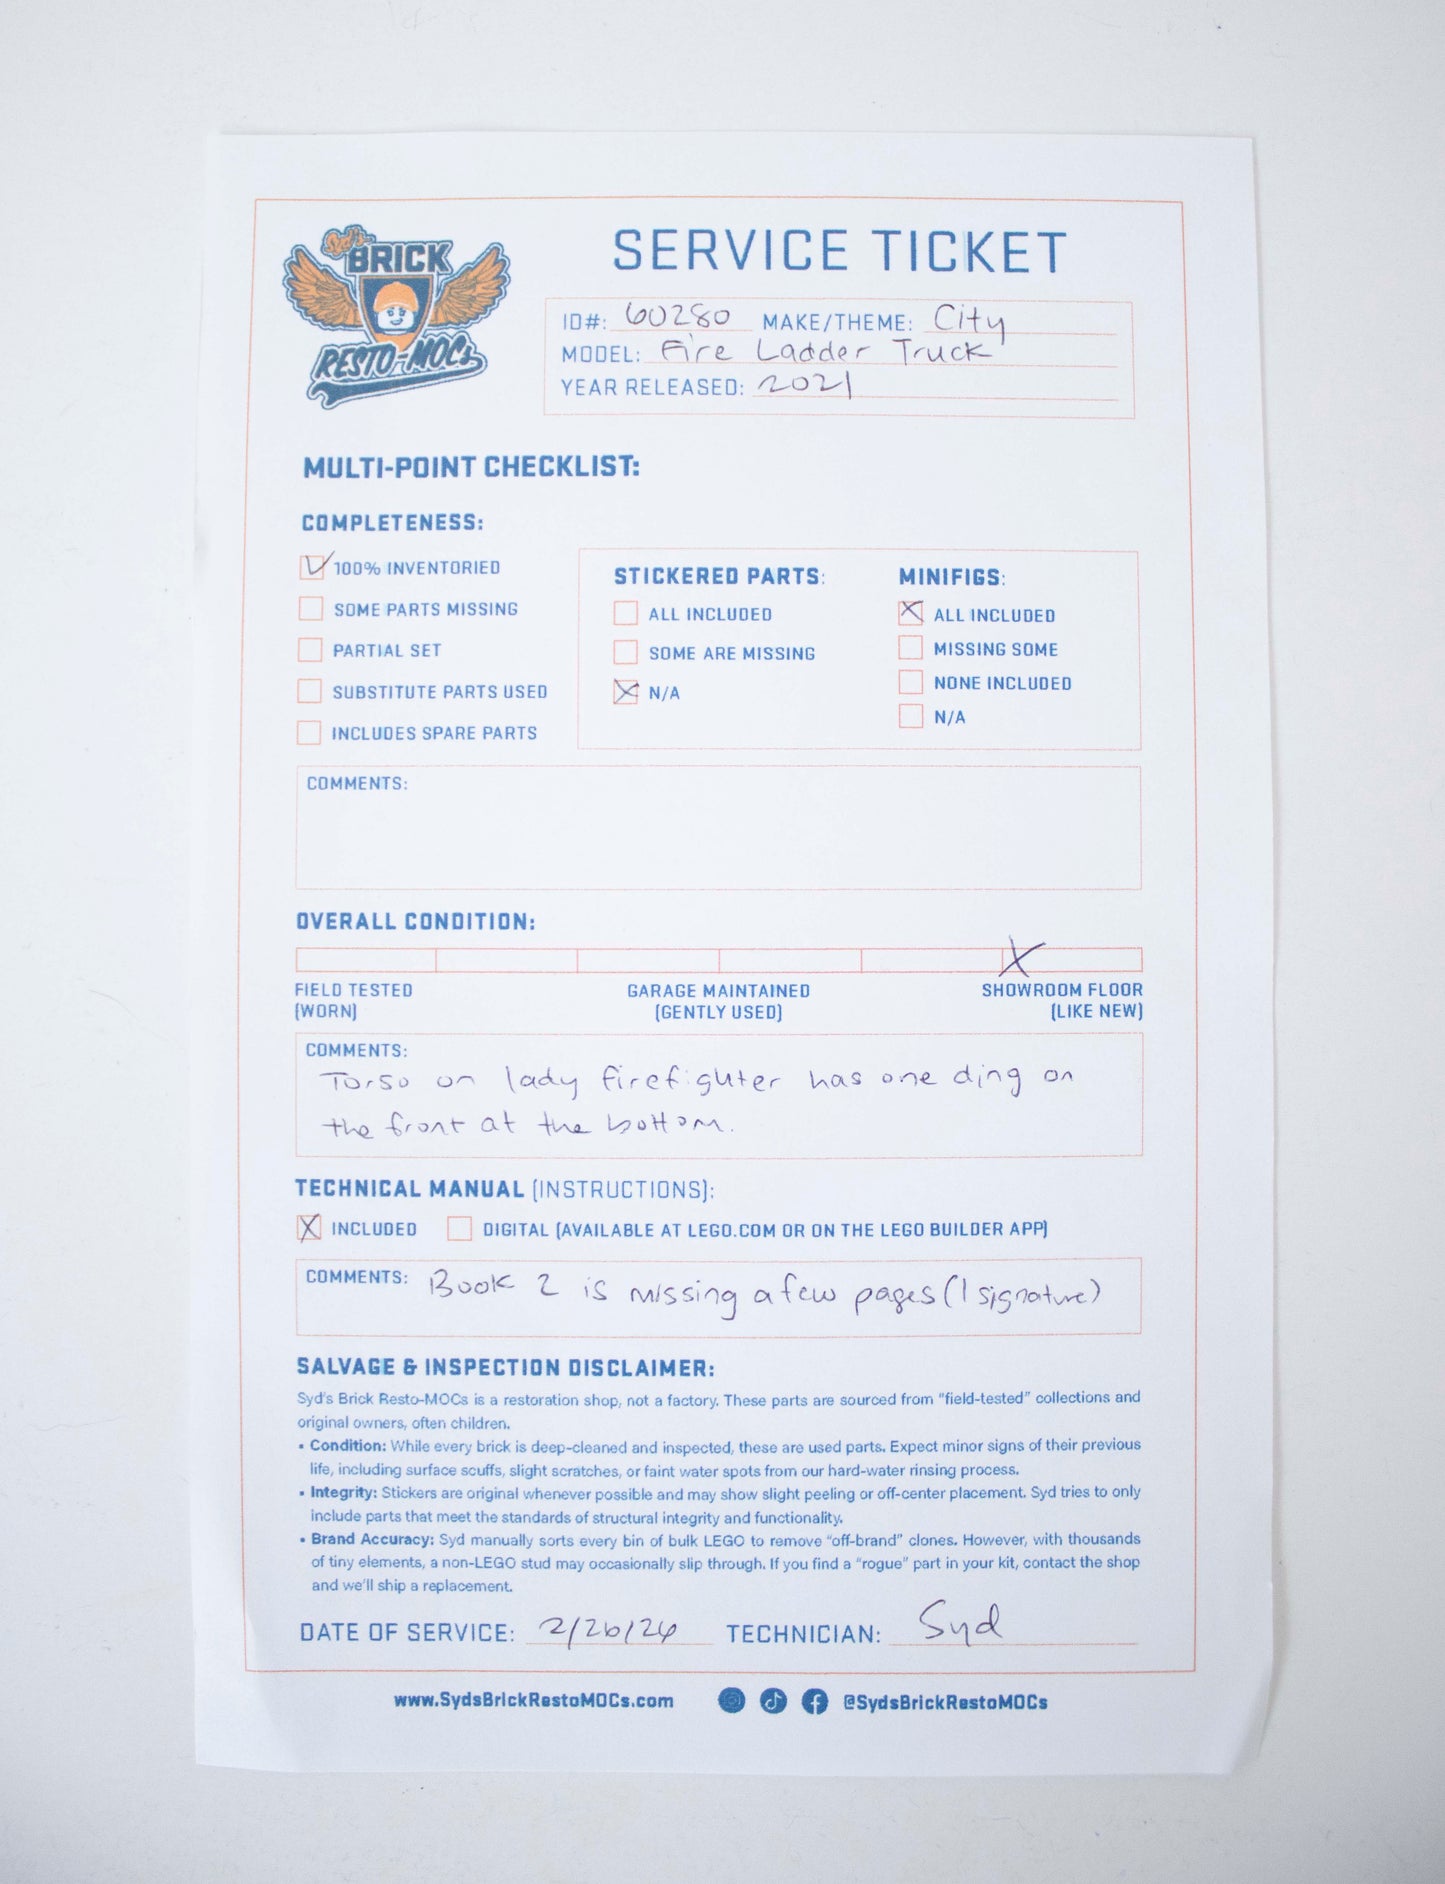 Syd's
BRICK
RESTO-MOCs
SERVICE TICKET
ID#: 60280 MAKE/THEME: City
MODEL: Fire Ladder Truck
YEAR RELEASED: 2021
MULTI-POINT CHECKLIST:
COMPLETENESS:
100% INVENTORIED
SOME PARTS MISSING
PARTIAL SET
SUBSTITUTE PARTS USED
INCLUDES SPARE PARTS
STICKERED PARTS:
ALL INCLUDED
SOME ARE MISSING
N/A
MINIFIGS:
ALL INCLUDED
MISSING SOME
NONE INCLUDED
N/A
COMMENTS:
OVERALL CONDITION:
FIELD TESTED
(WORN)
GARAGE MAINTAINED
(GENTLY USED)
SHOWROOM FLOOR
(LIKE NEW)
COMMENTS:
Torso on lady firefighter has one ding on
the front at the bottom.
TECHNICAL MANUAL (INSTRUCTIONS):
INCLUDED DIGITAL (AVAILABLE AT LEGO.COM OR ON THE LEGO BUILDER APP)
COMMENTS: Book 2 is missing a few pages (1 signature)
SALVAGE & INSPECTION DISCLAIMER:
Syd's Brick Resto-MOCs is a restoration shop, not a factory. These parts are sourced from "field-tested" collections and
original owners, often children.
• Condition: While every brick is deep-cleaned and inspected, these are used parts. Expect minor signs of their previous
life, including surface scuffs, slight scratches, or faint water spots from our hard-water rinsing process.
• Integrity: Stickers are original whenever possible and may show slight peeling or off-center placement. Syd tries to only
include parts that meet the standards of structural integrity and functionality.
• Brand Accuracy: Syd manually sorts every bin of bulk LEGO to remove "off-brand" clones. However, with thousands
of tiny elements, a non-LEGO stud may occasionally slip through. If you find a "rogue" part in your kit, contact the shop
and we'll ship a replacement.
DATE OF SERVICE: 2/26/26 TECHNICIAN: Syd
www.SydsBrickRestoMOCs.com @SydsBrickRestoMOCs